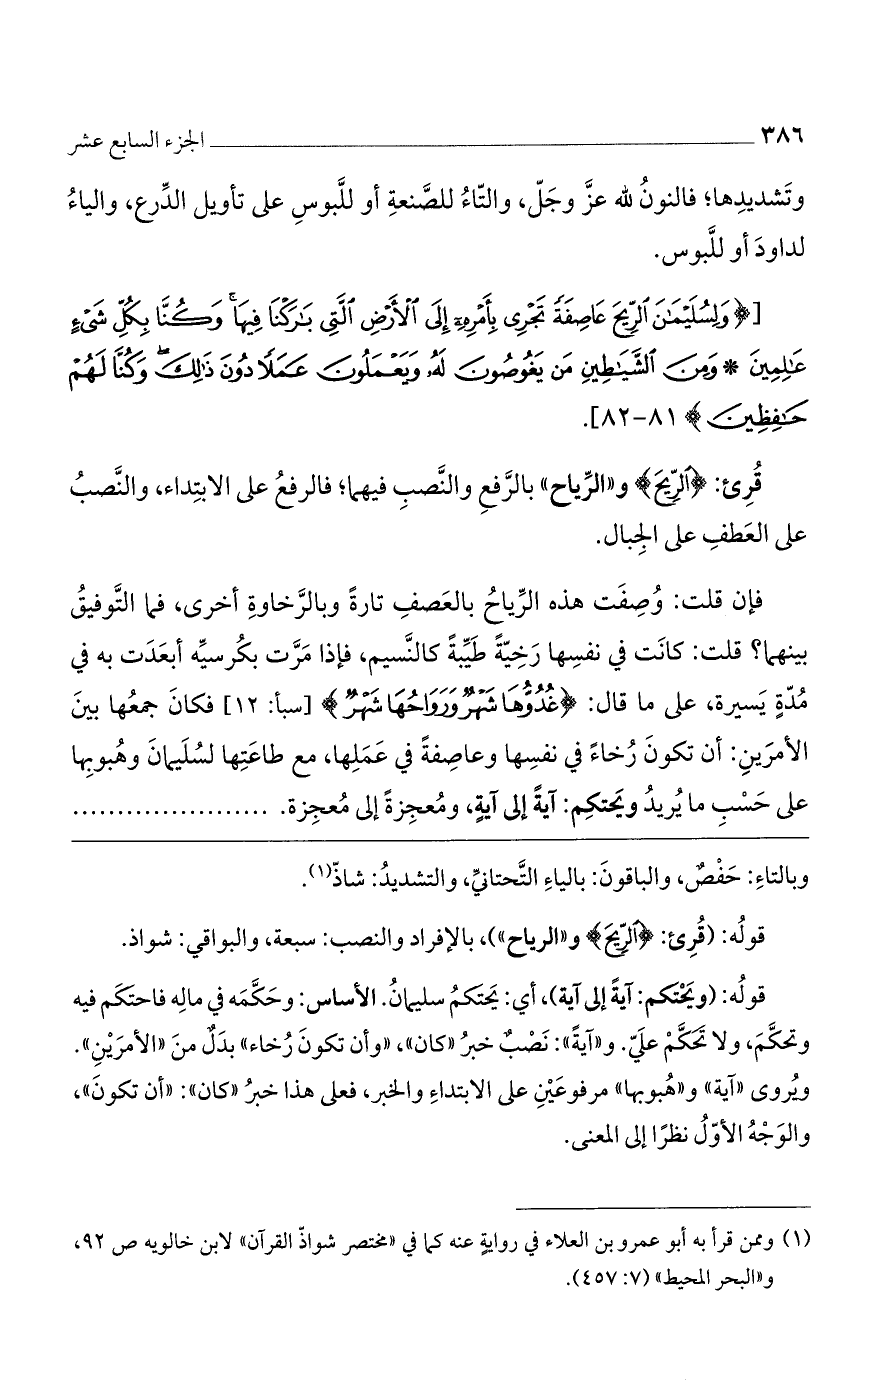 ٣٨٦ الجزء السابع عشر
وتَشديدِها؛ فالنونُ لله عزَّ وجَلّ، والتّاءُ للصَّنعةِ أو للَّبوسِ على تأويل الدِّرع، والياءُ
لداودَ أو للَّبوس.
[﴿وَلِسُلَيْمَٰنَ ٱلرِّيحَ عَاصِفَةً تَجْرِى بِأَمْرِهِۦٓ إِلَى ٱلْأَرْضِ ٱلَّتِى بَٰرَكْنَا فِيهَا ۚ وَكُنَّا بِكُلِّ شَىْءٍ
عَٰلِمِينَ * وَمِنَ ٱلشَّيَٰطِينِ مَن يَغُوصُونَ لَهُۥ وَيَعْمَلُونَ عَمَلًا دُونَ ذَٰلِكَ ۖ وَكُنَّا لَهُمْ
حَٰفِظِينَ﴾ ٨١-٨٢].
قُرِئ: ﴿ٱلرِّيحَ﴾ و«الرِّياح» بالرَّفعِ والنَّصبِ فيهما؛ فالرفعُ على الابتداء، والنَّصبُ
على العَطفِ على الجِبال.
فإن قلت: وُصِفَت هذه الرِّياحُ بالعَصفِ تارةً وبالرَّخاوةِ أخرى، فما التَّوفيقُ
بينهما؟ قلت: كانَت في نفسِها رَخِيّةً طَيِّبةً كالنَّسيم، فإذا مَرَّت بكُرسيِّه أبعَدَت به في
مُدّةٍ يَسيرة، على ما قال: ﴿غُدُوُّهَا شَهْرٌ وَرَوَاحُهَا شَهْرٌ﴾ [سبأ: ١٢] فكانَ جمعُها بينَ
الأمرَينِ: أن تكونَ رُخاءً في نفسِها وعاصِفةً في عَمَلِها، مع طاعَتِها لسُلَيمانَ وهُبوبِها
على حَسْبِ ما يُريدُ ويَحتكِم: آيةً إلى آيةٍ، ومُعجِزةً إلى مُعجِزة. ......................
وبالتاءِ: حَفْصٌ، والباقونَ: بالياءِ التَّحتانيِّ، والتشديدُ: شاذّ(١).
قولُه: (قُرِئ: ﴿ٱلرِّيحَ﴾ و«الرياح»)، بالإفراد والنصب: سبعة، والبواقي: شواذ.
قولُه: (ويَحْتكم: آيةً إلى آية)، أي: يَحتكمُ سليمانُ. الأساس: وحَكَّمَه في مالِه فاحتكَم فيه
وتحكَّمَ، ولا تَحَكَّمْ عليّ. و«آيةً»: نَصْبٌ خبرُ «كان»، «وأن تكونَ رُخاء» بدَلٌ منَ «الأمرَيْنِ».
ويُروى «آية» و«هُبوبها» مرفوعَيْنِ على الابتداءِ والخبر، فعلى هذا خبرُ «كان»: «أن تكونَ»،
والوَجْهُ الأوّلُ نظرًا إلى المعنى.
(١) وممن قرأ به أبو عمرو بن العلاء في روايةٍ عنه كما في «مختصر شواذّ القرآن» لابن خالويه ص ٩٢،
و«البحر المحيط» (٧: ٤٥٧).